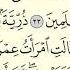 لَمِينَ ٣٣ ذُرِّيَّةَۢ
الَتِ ٱمْرَأَتُ عِمْرَ